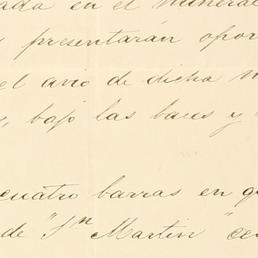 ada en el mineral
presentarán opor
el avío de dicha m
, bajo las bases y
cuatro barras en q
de "Sn Martin" ce